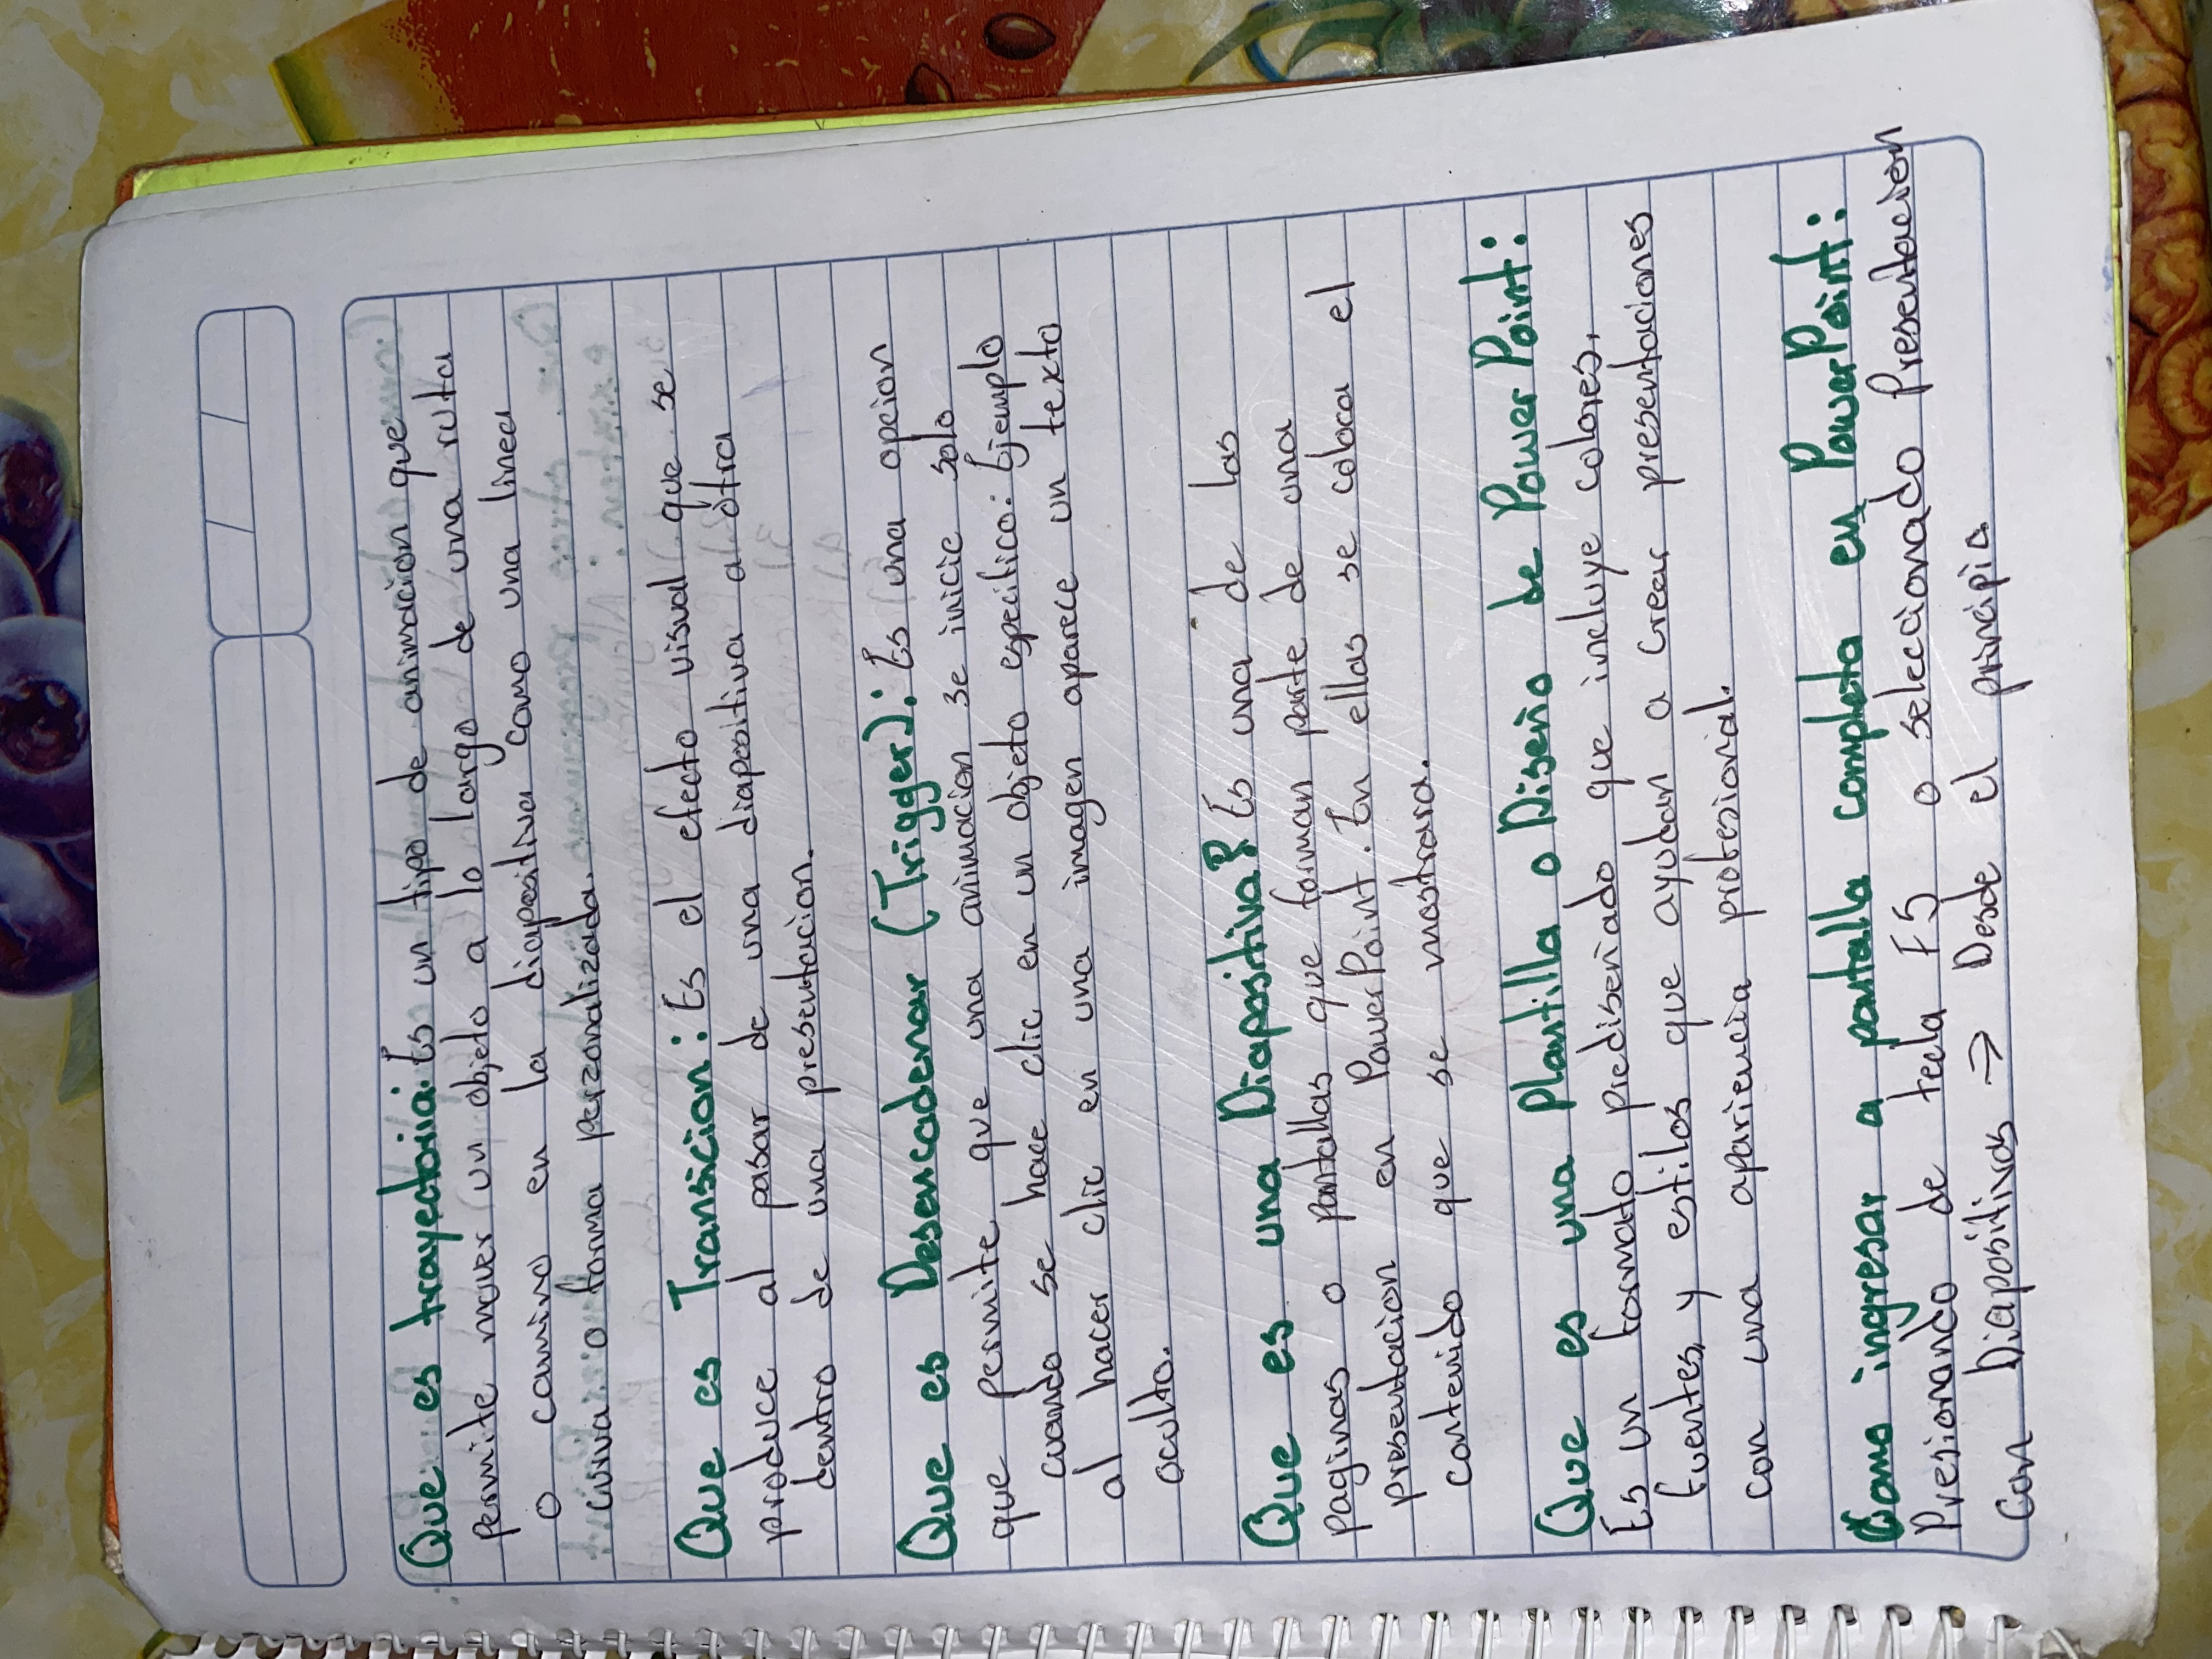 Que es trayectoria: Es un tipo de animación que
permite mover un objeto a lo largo de una ruta
o camino en la diapositiva como una linea
curva o forma perzonalizada.
Que es Transicion: Es el efecto visual que se
produce al pasar de una diapositiva a otra
dentro de una presentacion.
Que es Desencadenar (Trigger): Es una opcion
que permite que una animacion se inicie solo
cuando se hace clic en un objeto especifico: Ejemplo
al hacer clic en una imagen aparece un texto
oculto.
Que es una Diapositiva? Es una de las
paginas o pantallas que forman parte de una
presentacion en PowerPoint. En ellas se coloca el
contenido que se mostrara.
Que es una plantilla o Diseño de Power Point:
Es un formato prediseñado que incluye colores,
fuentes, y estilos que ayudan a crear presentaciones
con una apariencia profesional.
Como ingresar a pantalla completa en PowerPoint:
Presionando de tecla F5 o seleccionado Presentacion
con Diapositivas → Desde el principio